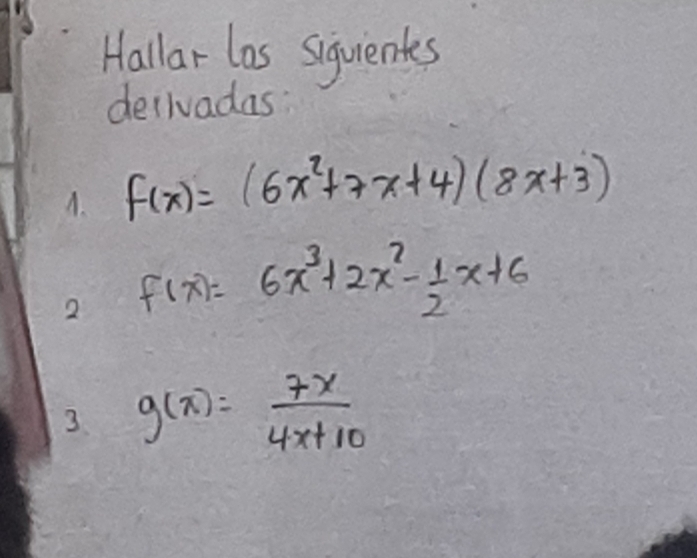 Hallar las siguientes
derivadas:
1. f(x)= (6x²+7x+4)(8x+3)
2 f(x)= 6x³+2x²-1/2x+6
3. g(x)= 7x/4x+10